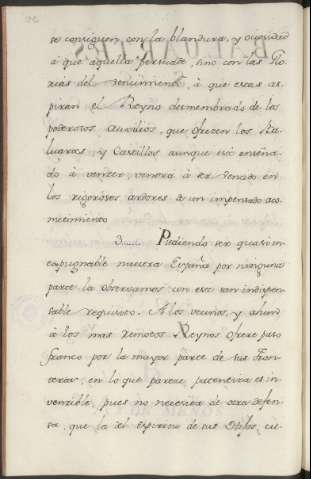 se consiguen con la blandura, y
à que aquella persuade, sino con las Glo-
rias del vencimiento, à que estas as-
piran el Reyno desmembrado de los
poderosos auxilios, que ofrecen los Ba-
luartes, y Castillos aunque este enseña-
do à vencer, vendrà à ser vencido en
los rigorosos ardores de un impensado aco-
metimiento
3. Pudiendo ser quasi in-
expugnable nuestra España por ninguna
parte la observamos con este tan indispen-
sable requisito. A los vecinos, y ahun
à los mas remotos Reynos ofrece paso
franco por la mayor parte de sus Fron-
teras, en lo que parece, se in-
vencible, pues no necesita de otra defen-
sa, que la del de sus